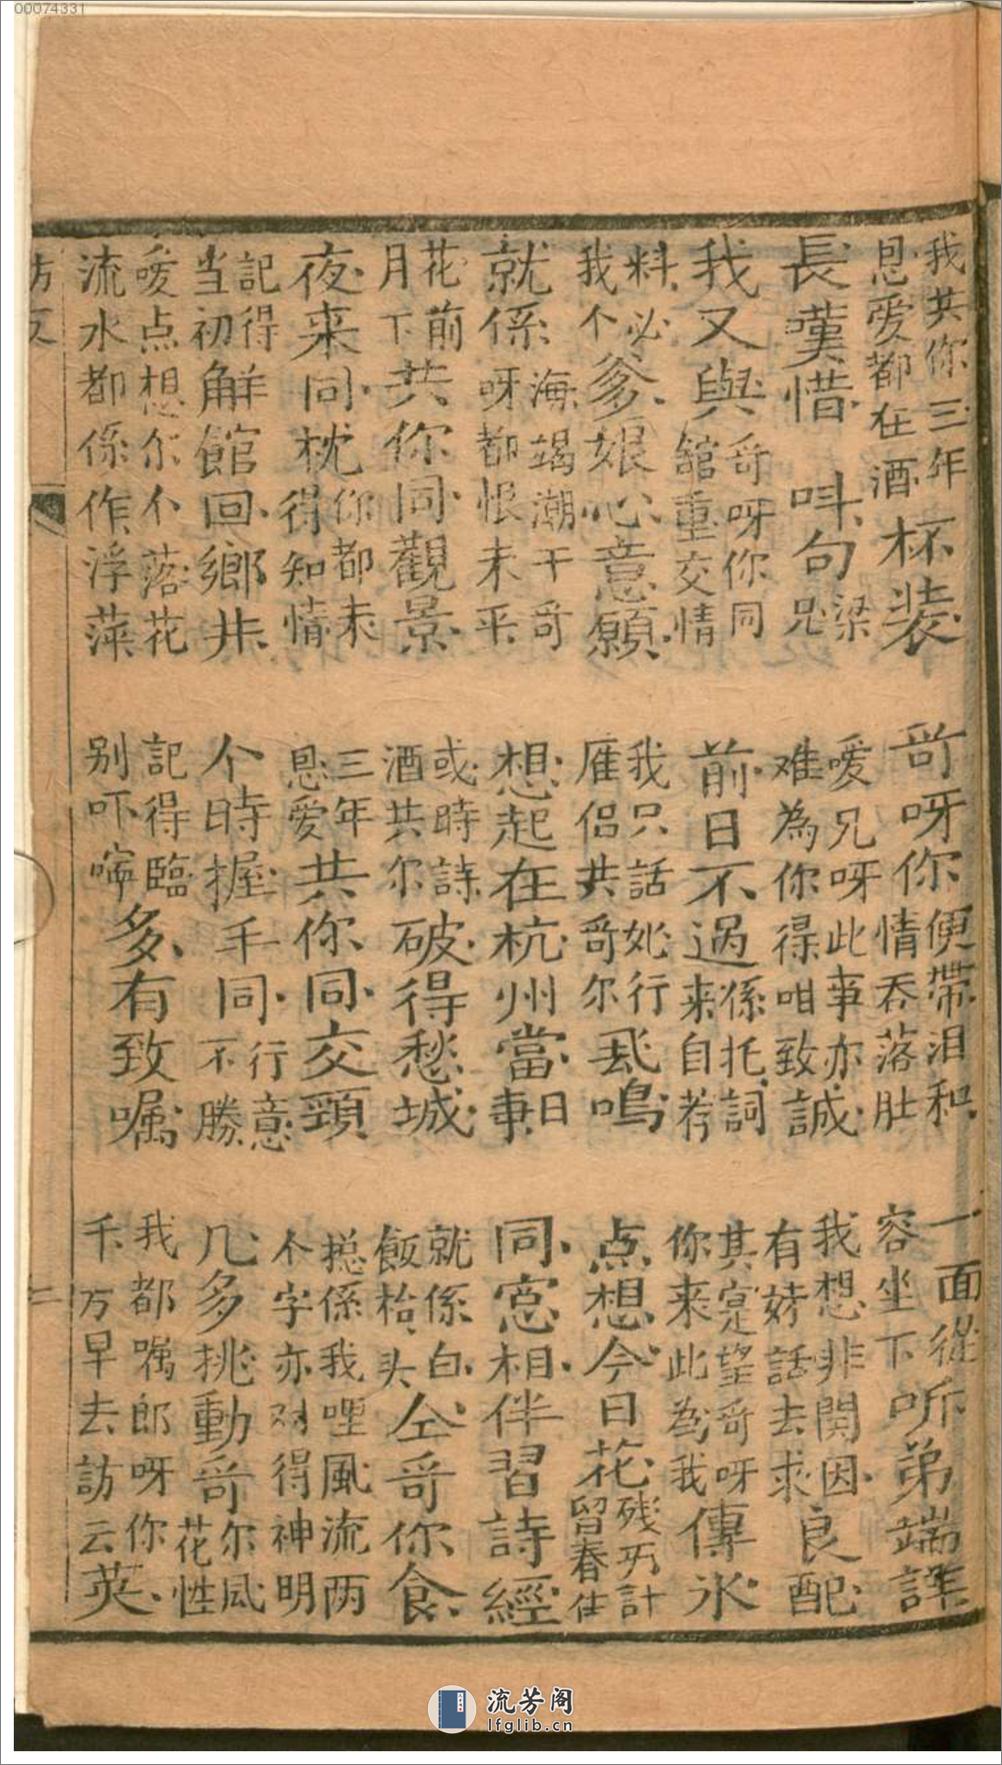 00074331
我共你三年恩愛都在酒杯装
哥呀你便帶泪和情吞落肚
一面從容坐下听弟端詳
長嘆惜 吽句梁兄
嗳兄呀此事亦难為你得咁致誠
我想非関因有好話去求良配
我又與哥呀你同舘重交情
前日不過係托詞来自荐
其寔望哥呀你来此為我傳氷
料必我不爹娘心意愿
我只話她行雁侣共哥尔鳴
点想今日花残計留春住
就係海竭潮干哥呀都恨未平
想起在杭州當日事
同窓相伴習詩經
花前月下共你同觀景
或時詩酒共尔破得愁城
就係白飯枱头仝哥你食
夜来同枕你都未得知情
三年恩愛共你同交頸
摠係我哩風流两个字亦对得神明
記得当初解館回鄉井
个時握手同行不勝意
几多挑動哥尔風花性
嗳点想尔小落花流水都係作浮萍
記得臨别吓嚀多有致嘱
我都嘱郎呀你千万早去訪云英
二
流芳阁
lfglib.cn